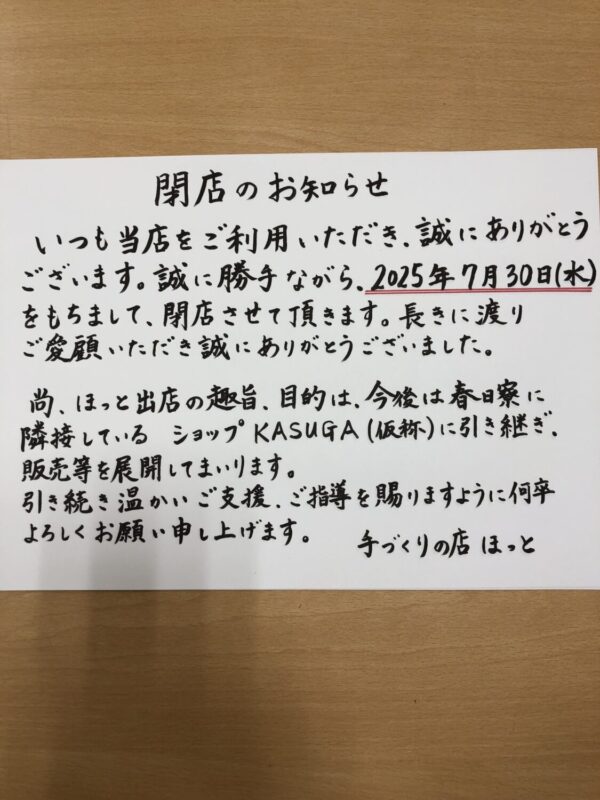 閉店のお知らせ
いつも当店をご利用いただき、誠にありがとう
ございます。誠に勝手ながら、2025年7月30日(水)
をもちまして、閉店させて頂きます。長きに渡り
ご愛顧いただき誠にありがとうございました。
尚、ほっと出店の趣旨、目的は、今後は春日寮に
隣接している ショップKASUGA(仮称)に引き継ぎ、
販売等を展開してまいります。
引き続き温かいご支援、ご指導を賜りますように何卒
よろしくお願い申し上げます。
手づくりの店 ほっと